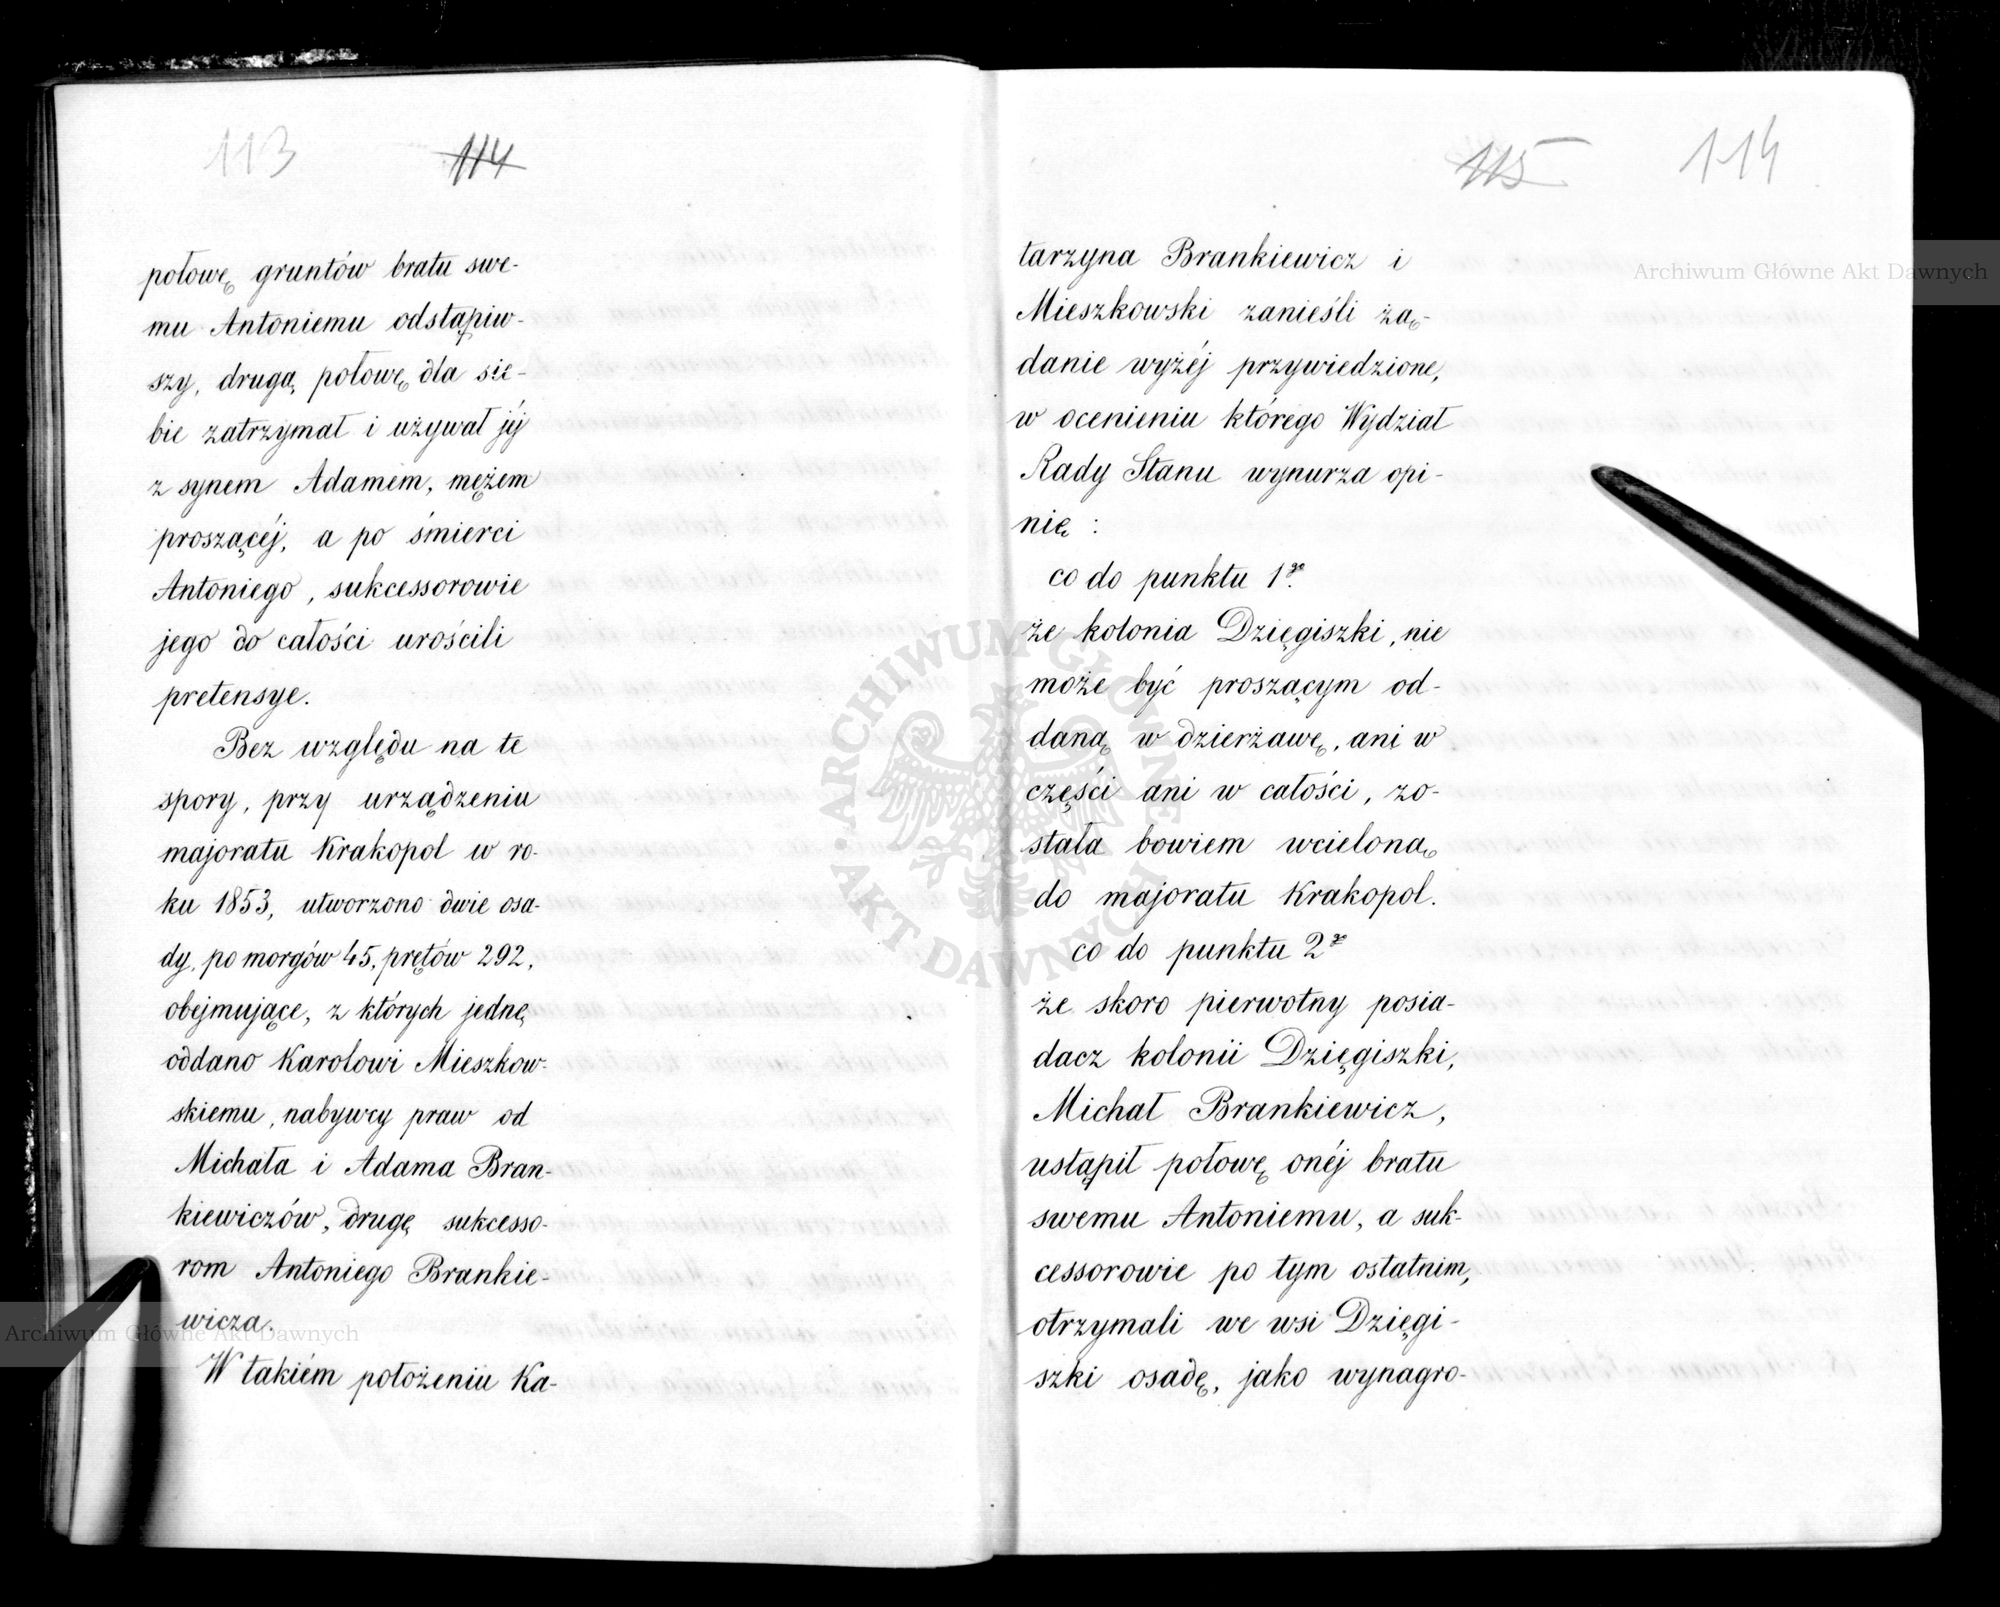 113 114
połowę gruntów bratu swe-
mu Antoniemu odstąpiw-
szy, drugą połowę dla sie-
bie zatrzymał i używał jéj
z synem Adamem, mężem
proszącéj, a po śmierci
Antoniego, sukcessorowie
jego do całości urościli
pretensye.
Bez względu na te
spory, przy urządzeniu
majoratu Krakopol w ro-
ku 1853, utworzono dwie osa-
dy, po morgów 45, prętów 292,
obejmujące, z których jednę
oddano Karolowi Mieszkow-
skiemu, nabywcy praw od
Michała i Adama Bran-
kiewiczów, drugę sukcesso-
rom Antoniego Brankie-
wicza.
W takiém położeniu Ka-
115 114
tarzyna Brankiewicz i
Mieszkowski zanieśli żą-
danie wyżéj przywiedzione,
w ocenieniu którego Wydział
Rady Stanu wynurza opi-
nię :
co do punktu 1go
że kolonia Dzięgiszki, nie
może być proszącym od-
daną w dzierżawę, ani w
części ani w całości, zo-
stała bowiem wcieloną
do majoratu Krakopol.
co do punktu 2go
że skoro pierwotny posia-
dacz kolonii Dzięgiszki,
Michał Brankiewicz,
ustąpił połowę onéj bratu
swemu Antoniemu, a suk-
cessorowie po tym ostatnim,
otrzymali we wsi Dzięgi-
szki osadę, jako wynagro-
Archiwum Główne Akt Dawnych
Archiwum Główne Akt Dawnych
ARCHIWUM GŁÓWNE
AKT DAWNYCH